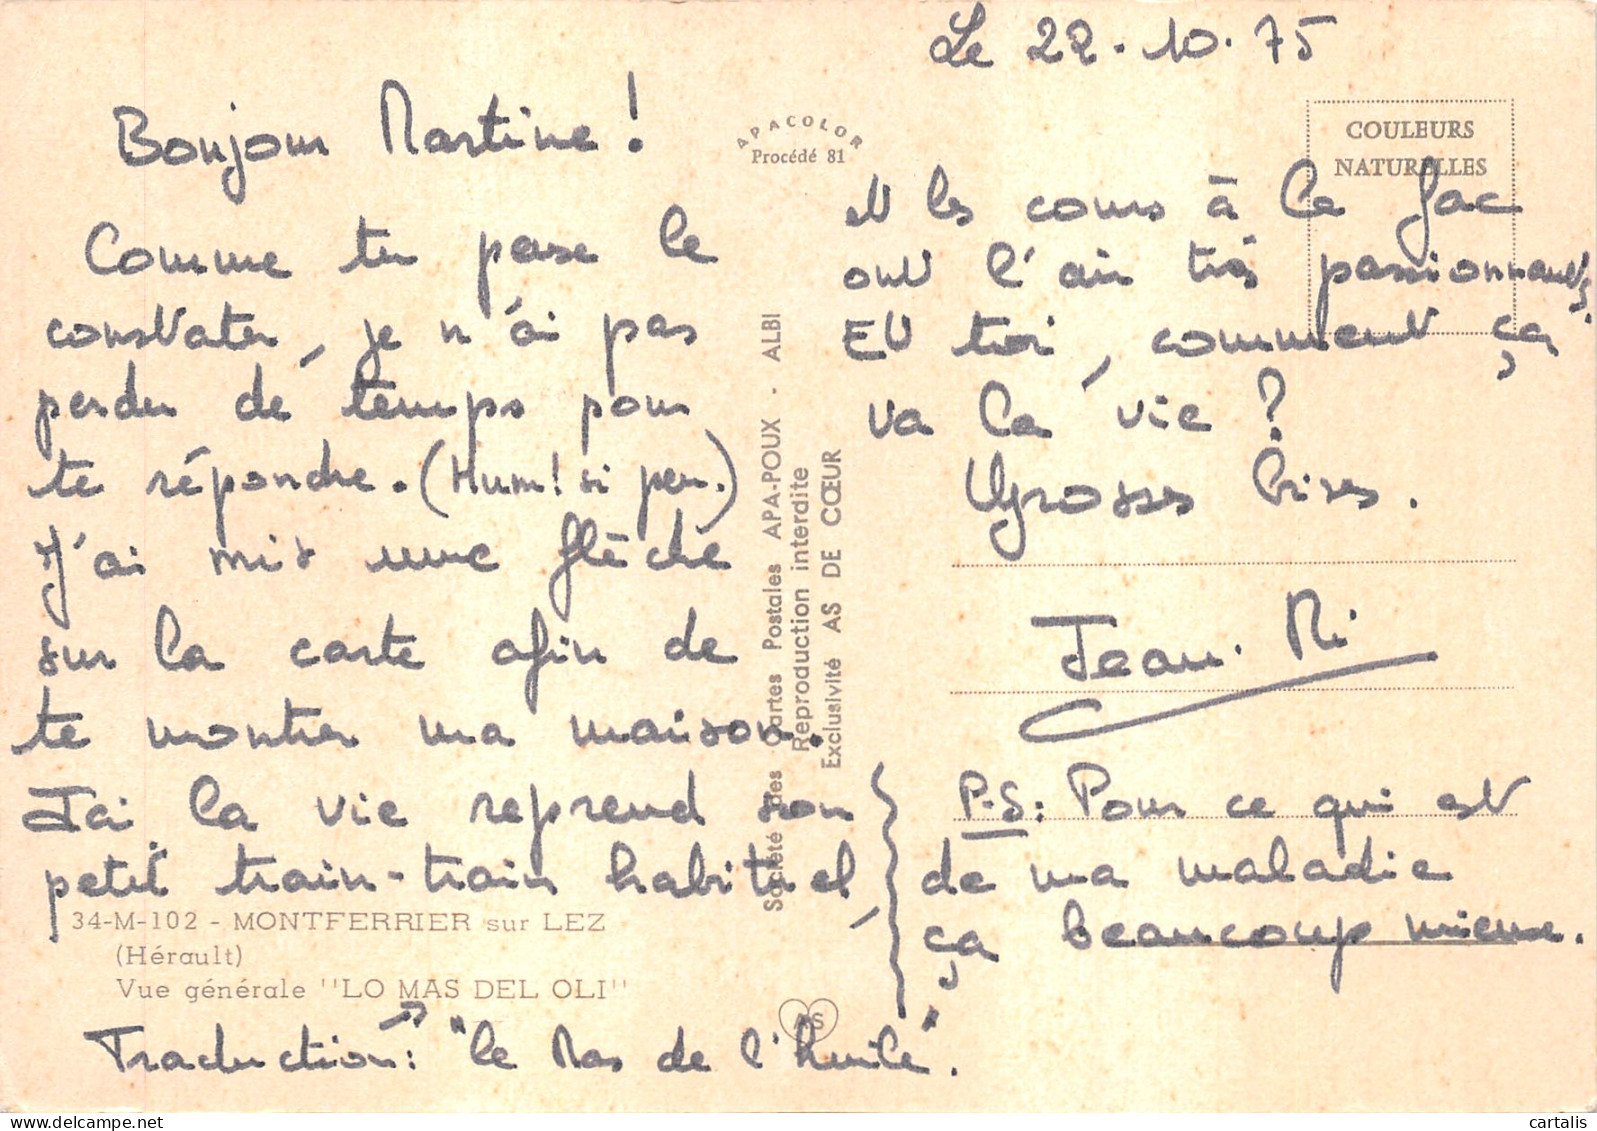 Le 22.10.75
Bonjour Martine !
Comme tu peux le
constater, je n'ai pas
perdu de temps pour
te répondre. (Hum! si peu.)
J'ai mis une flèche
sur la carte afin de
te montrer ma maison.
Ici la vie reprend son
petit train-train habituel,
et les cours à la fac
ont l'air très passionnants.
Et toi, comment ça
va la vie ?
Grosses bises.
Jean. Mi
P.S: Pour ce qui est
de ma maladie
ça beaucoup mieux.
APACOLOR
Procédé 81
COULEURS
NATURELLES
Société des Cartes Postales APA-POUX - ALBI
Reproduction interdite
Exclusivité AS DE CŒUR
34-M-102 - MONTFERRIER sur LEZ
(Hérault)
Vue générale "LO MAS DEL OLI"
AS
Traduction: "le Mas de l'huile".
cartalis